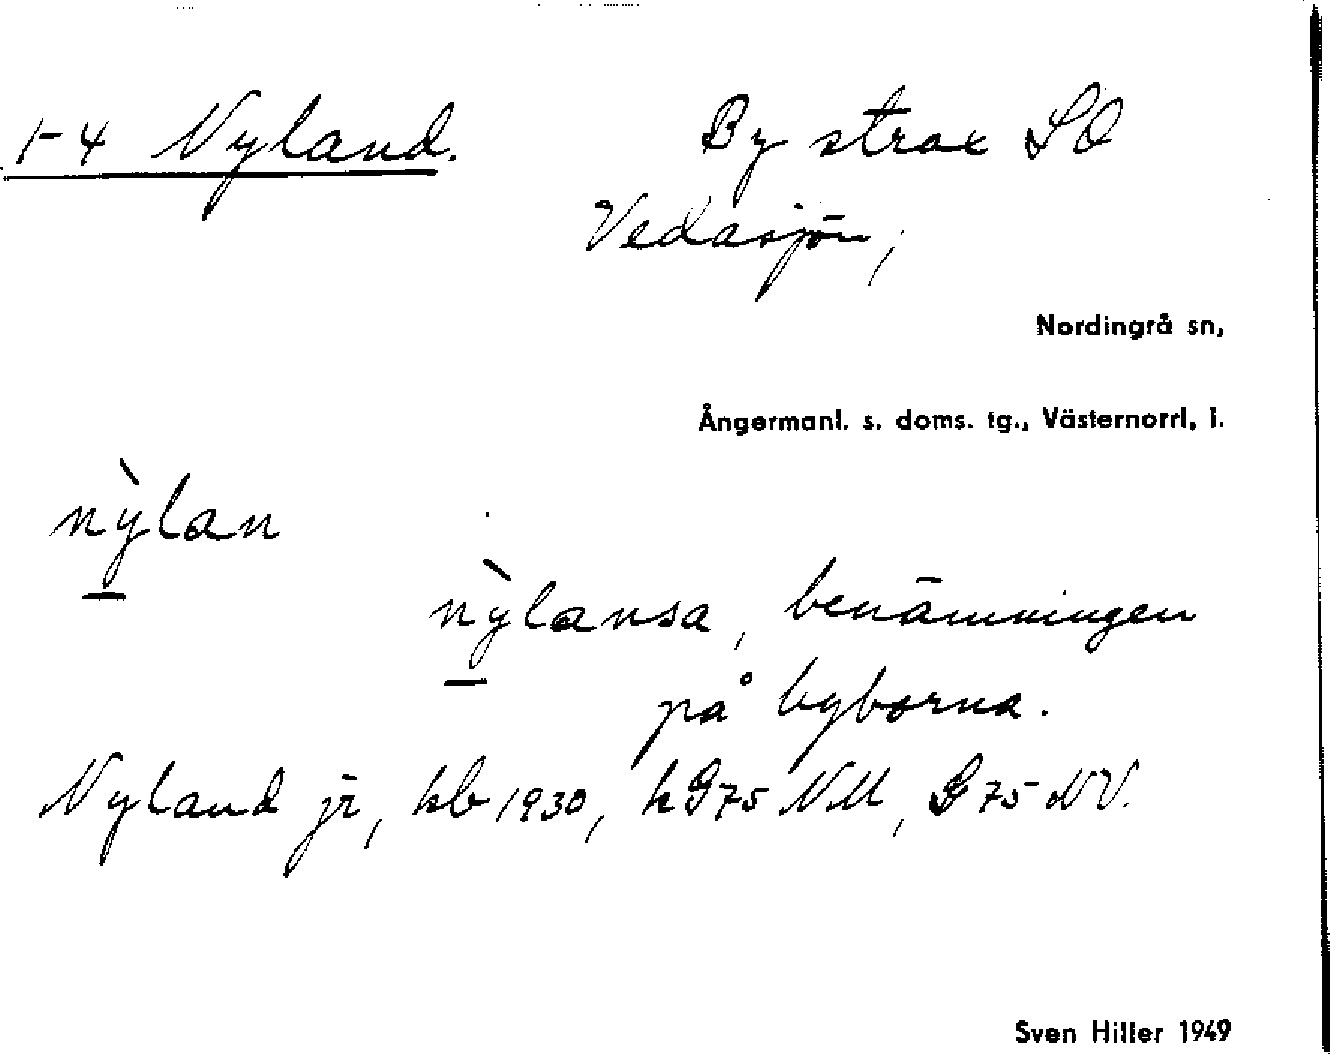 1-4 Nyland.
By strax SO
Vedasjön,
Nordingrå sn,
Ångermanl. s. doms. tg., Västernorrl. l.
nỳlan
nỳlansa, benämningen
på byborna.
Nyland jr, kb 1930, k G75 NM, G 75 NV.
Sven Hiller 1949